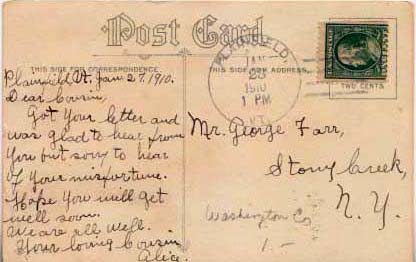 Post Card
THIS SIDE FOR CORRESPONDENCE
THIS SIDE FOR ADDRESS.
PLAINFIELD,
JAN
28
1910
1 PM
VT.
TWO CENTS
Plainfield Vt. Jan 27. 1910.
Dear Cousin,
Got Your letter and
was glad to hear from
You but sorry to hear
of Your misfortune.
Hope You will get
well soon.
We are all well.
Your loving Cousin
Alice.
Mr. George Farr,
Stony Creek,
N. Y.
Washington Co
1.-